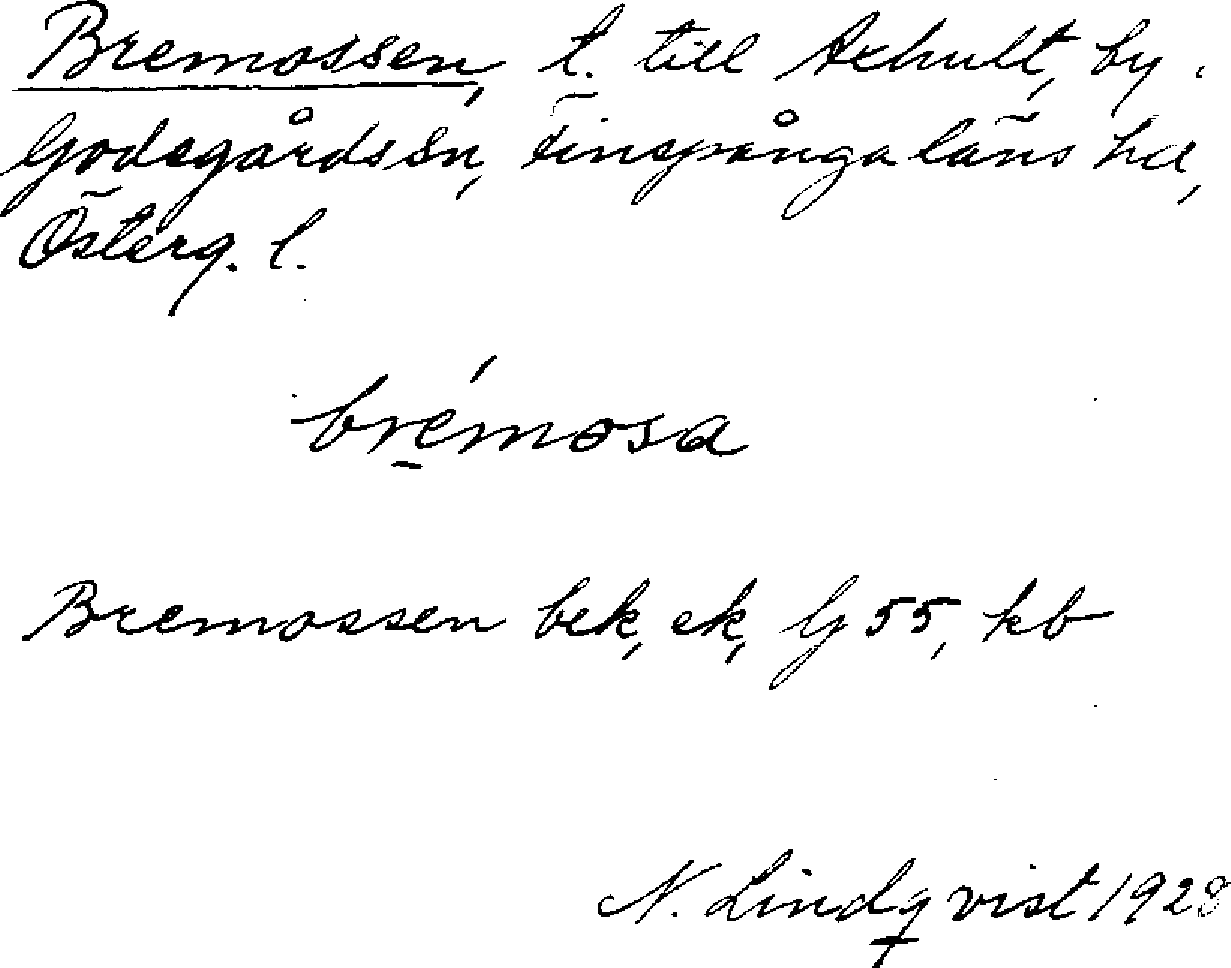 Bremossen, t. till Axhult, by,
Godegårds sn, Finspånga läns hd,
Österg. l.
brémosa
Bremossen bek, ek, G 55, kb
N. Lindqvist 1928